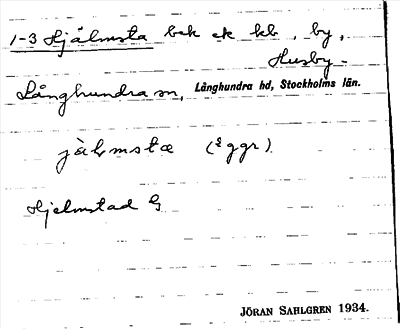 1-3 Hjälmsta bek ek kb, by,
Husby-
Långhundra sn, Långhundra hd, Stockholms län.
jälmsta (2 ggr)
Hjelmstad G
JÖRAN SAHLGREN 1934.